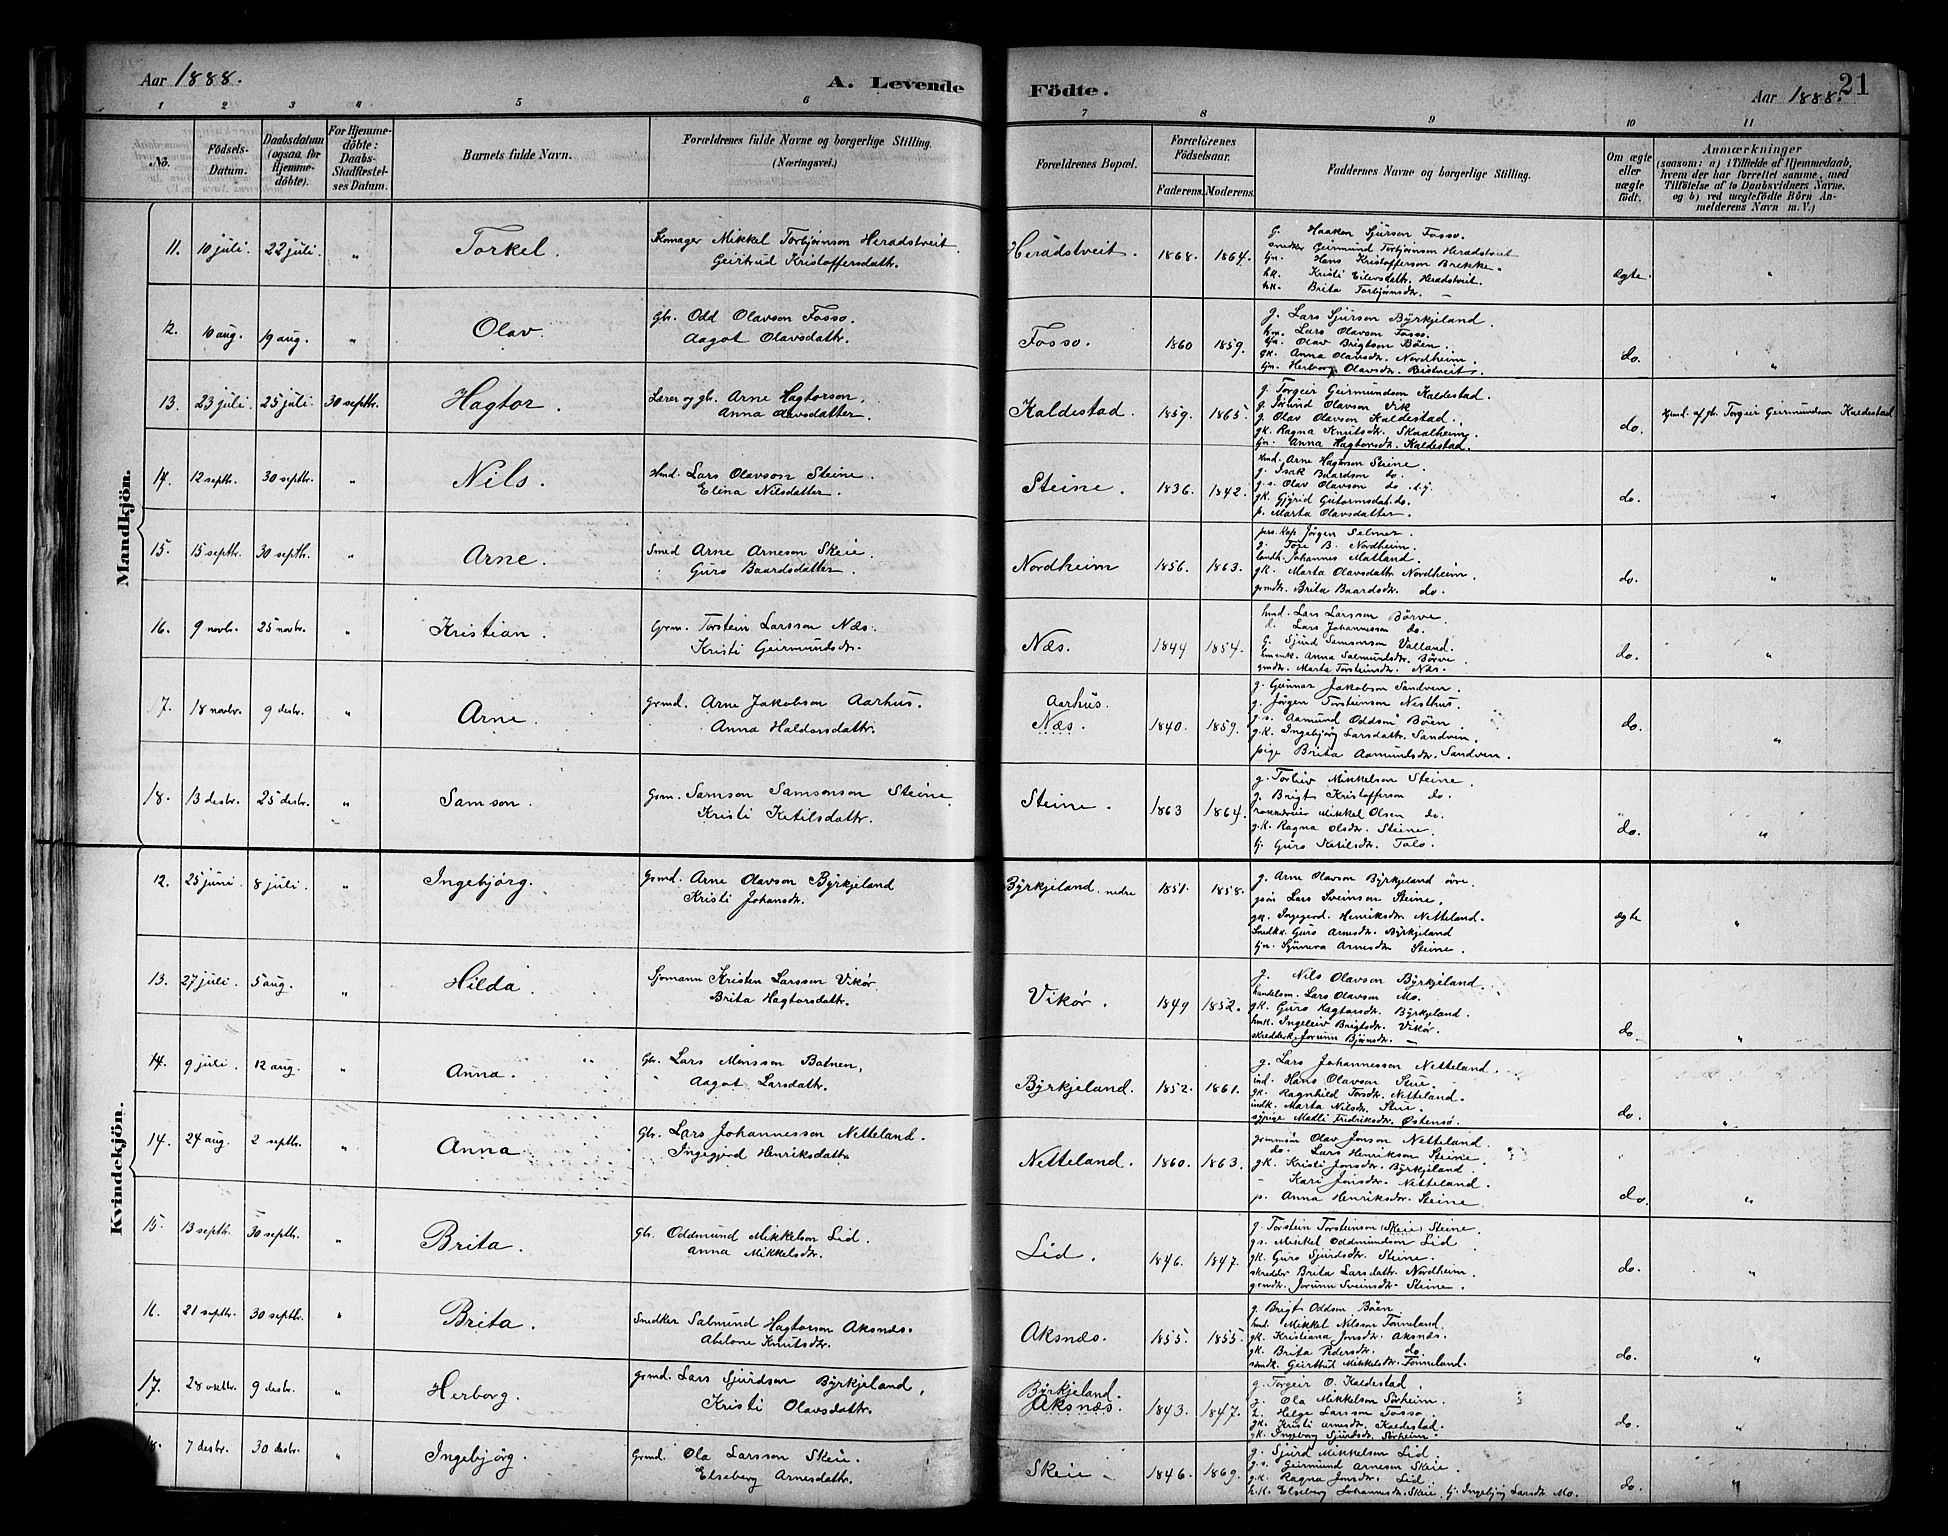 Aar 1888. A. Levende Födte. Aar 1888. 21
1 2 3 4 5 6 7 8 9 10 11
No. Födsels-Datum. Daabsdatum (ogsaa for Hjemmedöbte). For Hjemmedöbte: Daabs-Stadfæstelses Datum. Barnets fulde Navn. Forældrenes fulde Navne og borgerlige Stilling. (Næringsvei.) Forældrenes Bopæl. Forældrenes Födselsaar. Faderens. Moderens. Faddernes Navne og borgerlige Stilling. Om ægte eller uægte født. Anmærkninger (saasom: a) i Tilfælde af Hjemmedaab, hvem der har forrettet samme, med Tilföielse af to Daabsvidners Navne, og b) ved uægtefödte Börn Anmelderens Navn m. V.)
Mandkjön.
11. 10 juli. 22 juli. " Torkel. Skomager Mikkel Torbjørnson Heradstveit
Geirtrud Kristoffersdatr.
Heradstveit. 1868. 1864.
G. Haakon Sjurson Fosso.
snedker Geirmund Torbjørnson Heradstveit
tjn. Hans Kristofferson Brekke.
hk. Kristi Eilevsdatr. Heradstveit.
hk. Brita Torbjørnsdr. —
ægte. "
12. 10 aug. 19 aug. " Olav. gbr. Odd Olavson Fosso.
Aagot Olavsdatr.
Fosso. 1860 1859.
g. Lars Sjurson Byrkjeland.
hm. Lars Olavson Fosso.
tjn. Olav Brigtson Böen.
gk. Anna Olavsdr. Nordheim.
tjn. Herborg Olavsdr. Reistveit.
do. "
13. 23 juli. 25 juli. 30 septbr. Hagtor. Lærer og gb. Arne Hagtorson,
Anna Olavsdatter.
Kaldestad. 1859. 1865.
g. Torgeir Geirmundson Kaldestad.
g. Jörund Olavson Vik
g. Olav Olavson Kaldestad.
gk. Ragna Knutsdr. Skaalheim.
tjn. Anna Hagtorsdr. Kaldestad.
do. Hjmd. af gb. Torgeir Geirmundson Kaldestad
14. 12 septbr. 30 septbr. " Nils. Hmd. Lars Olavson Steine.
Elina Nilsdatter.
Steine. 1836. 1842.
Hmd. Arne Hagtorson Steine.
g. Isak Baardson do.
g.s. Olav Olavson do.
gk. Gjyrid Gutormsdat. do.
p. Marta Olavsdatter.
do. "
15. 15 septbr. 30 septbr. " Arne. Smed Arne Arneson Skeie.
Guro Baardsdatter.
Nordheim 1856. 1863.
pers. Kap. Jörgen Selmer.
g. Tore B. Nordheim.
landh. Johannes Matland.
gk. Marta Olavsdatr. Nordheim.
grmdr. Brita Baardsdr. do.
do. "
16. 9 novbr. 25 novbr. " Kristian. Grm. Torstein Larsson Næs.
Kristi Geirmundsdr.
Næs. 1844 1854.
hmd. Lars Larsson Börve.
d. Lars Johannesson do.
G. Sjurd Samsonson Valland.
Anna Salmundsdr. Börve.
grmdr. Marta Torsteinsdr. Næs.
do. "
17. 18 novbr. 9 desbr. " Arne. Grmd. Arne Jakobson Aarhus.
Anna Haldorsdatr.
Aarhus.
Næs. 1840. 1859.
g. Gunnar Jakobson Sandven.
g. Jörgen Torsteinson Nesthus.
g.s. Aamund Oddson Böen.
g.k. Ingebjörg Larsdatr. Sandven.
pige Brita Aamundsdr. Sandven.
do. "
18. 13 desbr. 25 desbr. " Samson. Grm. Samson Samsonson Steine
Kristi Ketilsdatr.
Steine. 1863 1864.
g. Torleiv Mikkelson Steine
g. Brigt Kristofferson do.
Mikkel Olsen do.
g.k. Ragna Olsdr. Steine.
tj. Guro Ketilsdr. Tolo.
do. "
Kvindekjön.
12. 25 juni. 8 juli. " Ingebjörg. Grmd. Arne Olavson Byrkjeland
Kristi Johansdr.
Byrkjeland. nedre 1851. 1858.
g. Arne Olavson Byrkjeland övre.
gsön Lars Sveinson Steine.
gk. Ingegerd Henriksdr. Netteland.
Snedkk. Guro Arnesdr. Byrkjeland
tjn. Synneva Arnesdr. Steine.
ægte "
13. 27 juli. 5 aug. " Hilda. Sjømann Kristen Larsson Vikör
Brita Hagtorsdatr.
Vikør. 1849 1852.
g. Nils Olavson Byrkjeland.
handelsm. Lars Olavson Mo.
gk. Guro Hagtorsdr. Byrkjeland.
hmk. Ingeleiv Brigtsdr. Vikør.
skredderk. Jorunn Bjørnsdr. —
do. "
14. 9 juli. 12 aug. " Anna. Gbr. Lars Monsson Botnen,
Aagot Larsdatr.
Byrkjeland. 1852. 1861.
g. Lars Johannesson Netteland.
ind. Hans Olavson Skeie.
gk. Ragnhild Torsdr. Netteland.
indk. Marta Nilsdr. Skeie.
sypige Matli Fredriksdr. Östensö.
do. "
14. 24 aug. 2 septbr. " Anna Gbr. Lars Johannesson Netteland.
Ingegjerd Henriksdatr.
Netteland. 1860. 1863.
grmmsön Olav Jonson Netteland.
do. Lars Henrikson Steine.
gk. Kristi Jonsdr. Byrkjeland.
– Kari Jonsdr. Netteland.
ps. Anna Henriksdr. Steine.
do. "
15. 13 septbr. 30 septbr. " Brita. Gbr. Oddmund Mikkelson Lid.
Anna Mikkelsdr.
Lid. 1846. 1847.
g. Torstein Torsteinson (Skeie) Steine
gs. Mikkel Oddmundson Lid
gk. Guro Sjurdsdr. Steine.
skredder Brita Larsdatr. Nordheim.
grmdr. Jorunn Sveinsdr. Steine.
do. "
16. 21 septbr. 30 septbr. " Brita. Snedker Salmund Hagtorson Aksnæs.
Abelone Knutsdr.
Aksnæs. 1855. 1855.
g. Brigt Oddson Böen
hmd. Mikkel Nilsson Tonneland.
gk. Kristiana Jonsdr. Aksnæs.
gk. Brita Pedersdr. do.
smdk. Geirtrud Mikkelsdr. Tonneland.
do. "
17. 28 oktbr. 9 desbr. " Herborg. grmd. Lars Sjurdson Byrkjeland,
Kristi Olavsdatr.
Byrkjeland.
Aksnæs. 1843. 1847.
g. Torgeir O. Kaldestad.
g. Ola Mikkelson Sörheim.
Helge Larsson Fosso.
gk. Kristi Arnesdr. Kaldestad.
gk. Ingeborg Sjurdsdr. Sörheim.
do. "
18. 7 desbr. 30 desbr. " Ingebjörg. Grmd. Ola Larsson Skeie.
Elseberg Arnesdatr.
Skeie. 1846. 1869.
g. Sjurd Mikkelson Lid.
g.s. Geirmund Arneson Skeie.
g.k. Ragna Jonsdr. Lid.
h.k. Elseberg Johannesdr. Skeie, tj. Ingebjörg Larsdr. Mo.
do. "